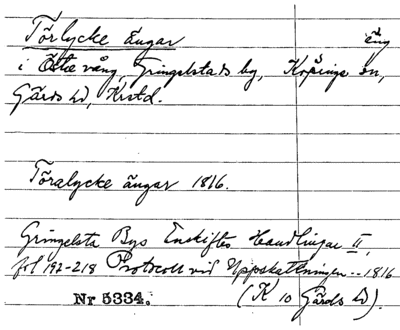 Törlycke ängar äng
i Östa vång, Gringelstads by, Köpinge sn,
Gärds hd, Krstd.
Töralycke ängar 1816.
Gringelsta Bys Enskiftes Handlingar II,
fol 192-218 Protocoll vid Uppskattningen -- 1816
Nr 5334. (K 10 Gärds hd).